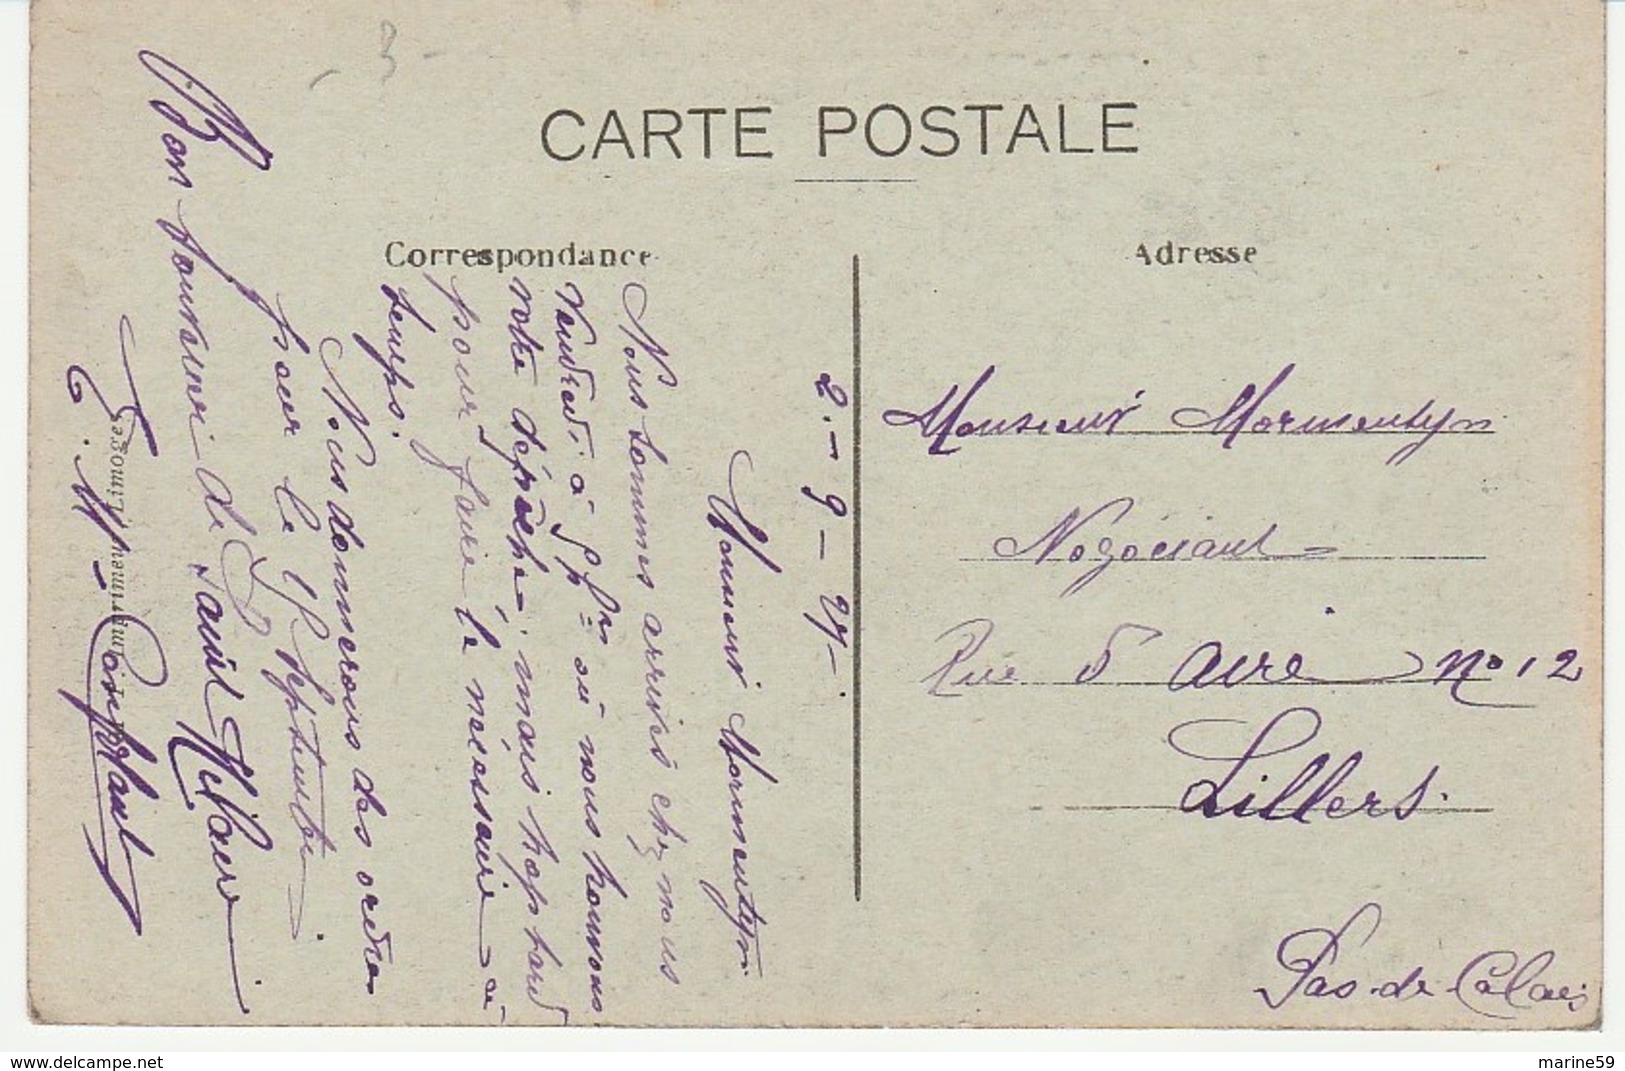 3
CARTE POSTALE
Correspondance
Adresse
2-9-27.
Monsieur Mormentyn
Nous sommes arrivés chez nous
Vendredi à 9h où nous trouvons
votre dépêche. mais trop tard
pour faire le nécessaire à
temps.
Nous donnerons des ordres
pour le 15 septembre
Bon souvenir de Saint Hilaire
G. M.
Imprimeur, Limoges
Monsieur Mormentyn
Négociant
Rue d'aire no 12
Lillers.
Pas-de-Calais
marine59